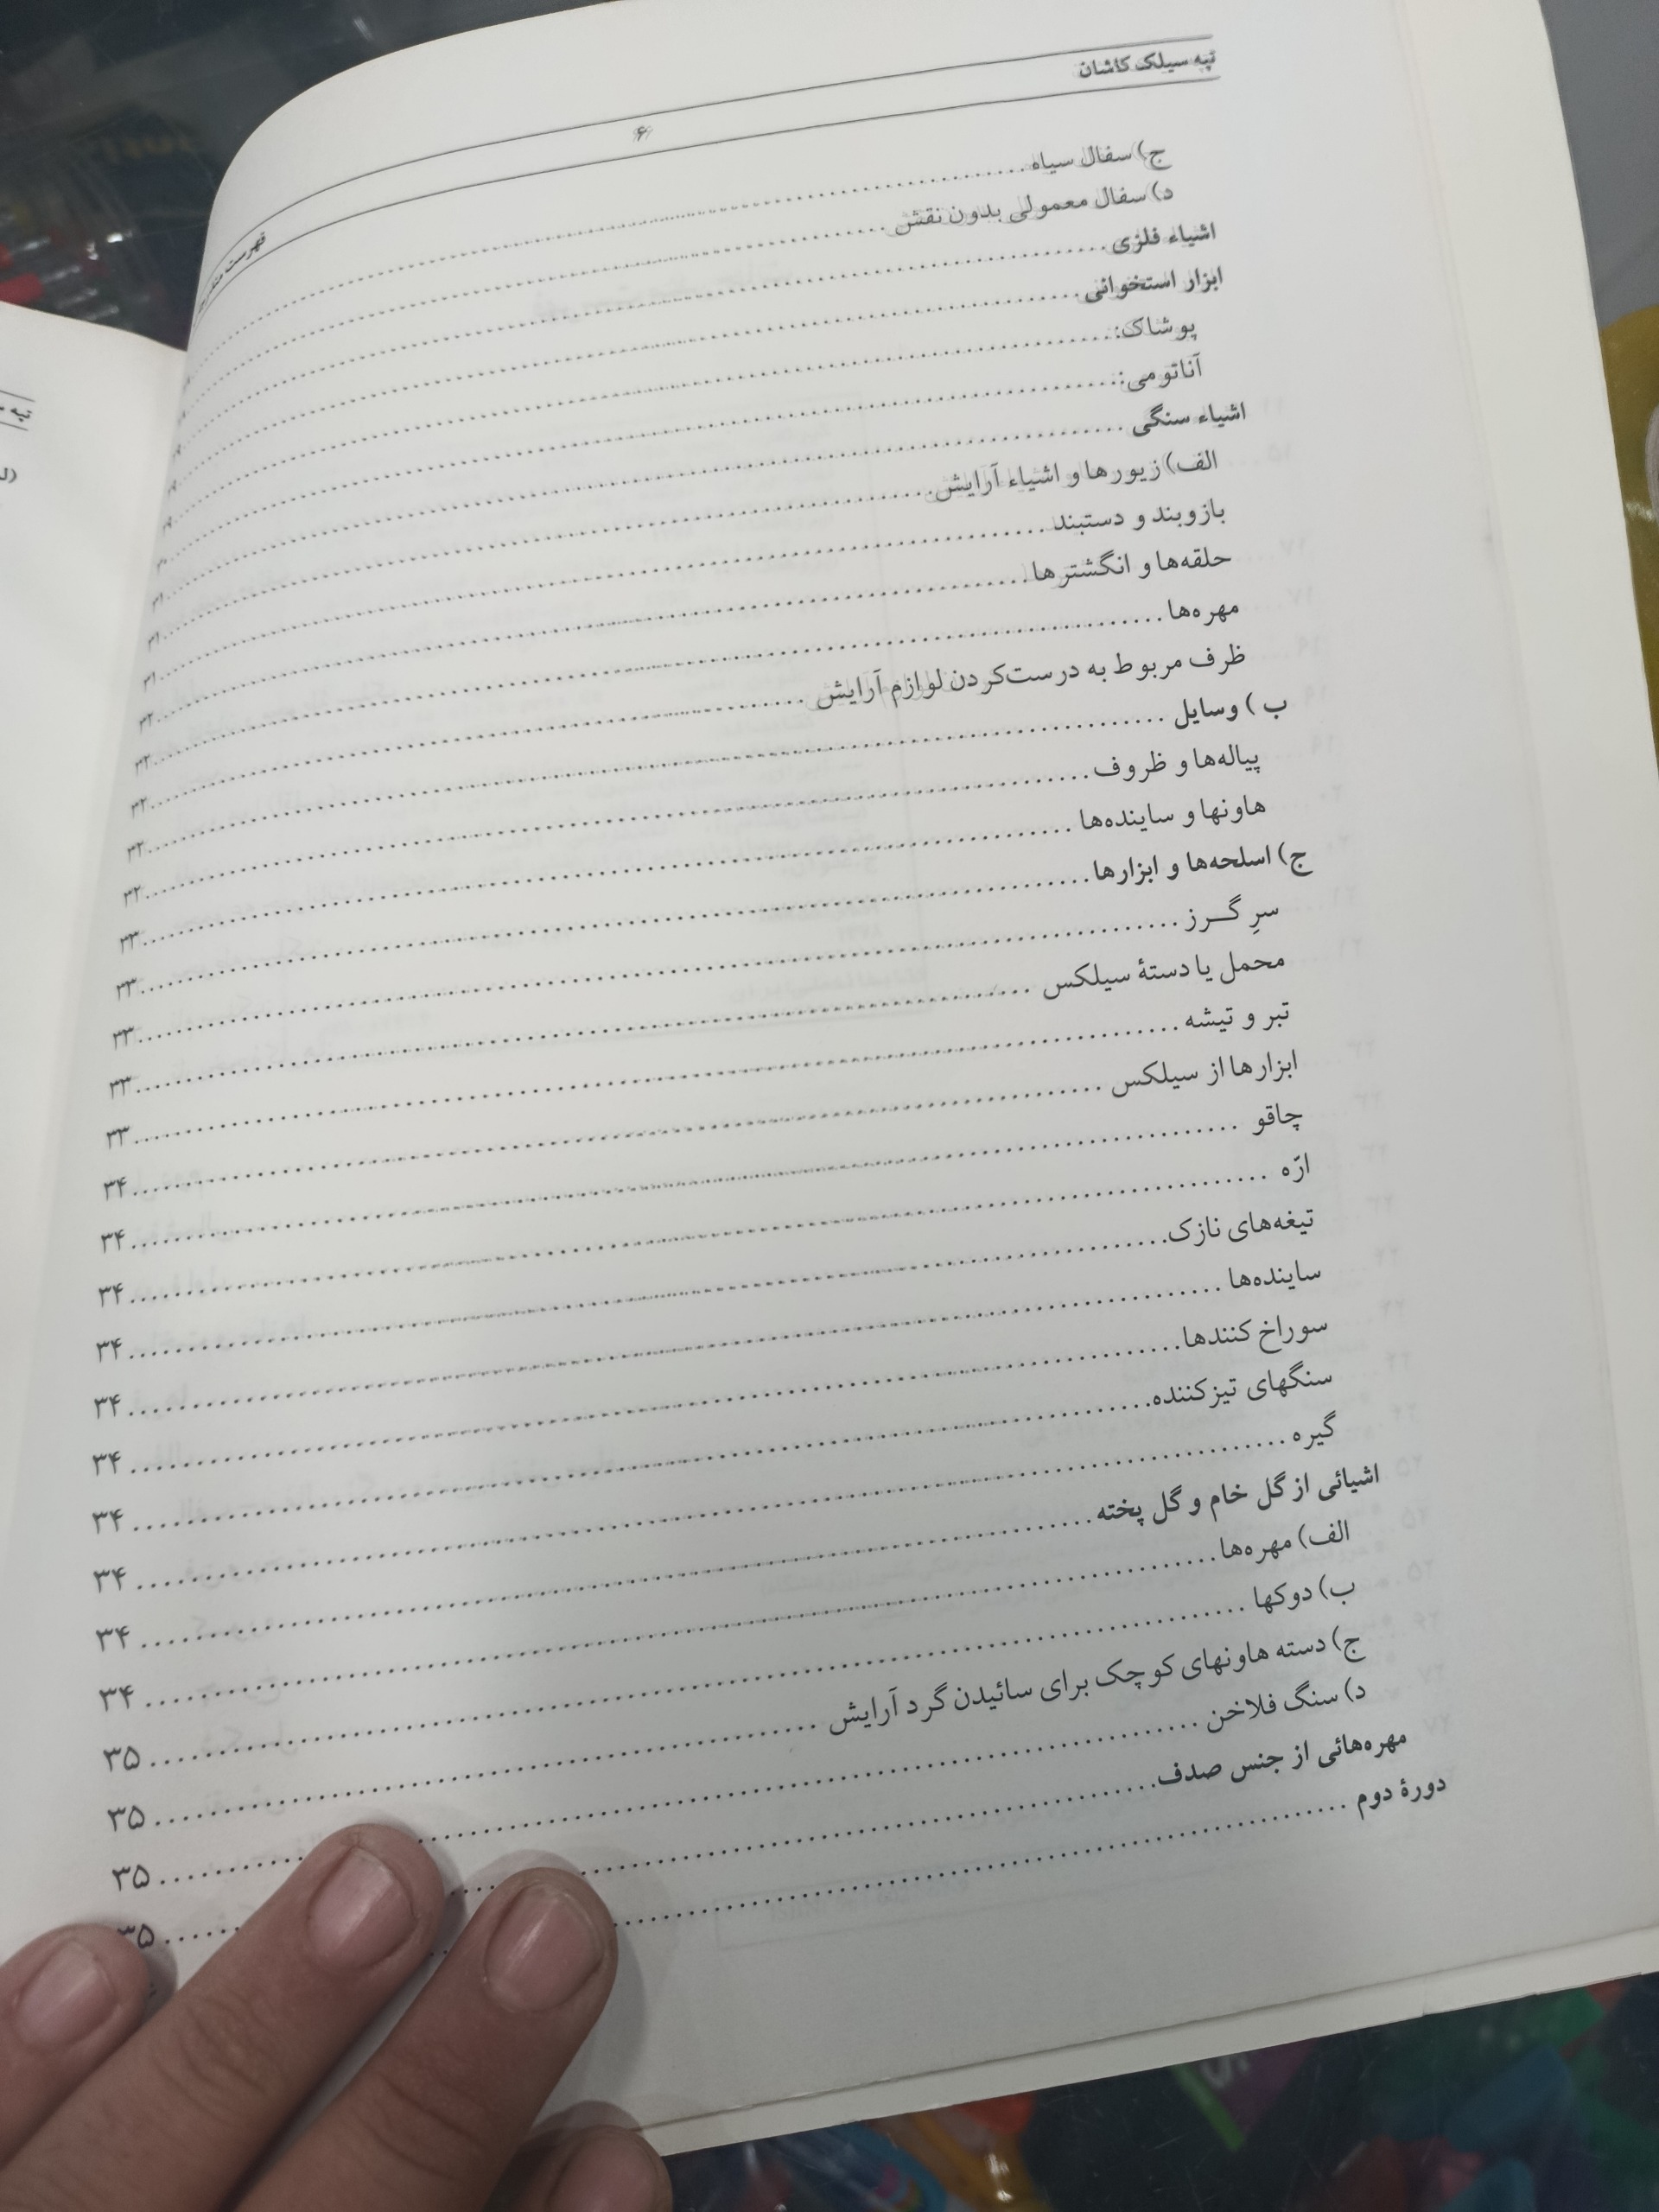 تپه سیلک کاشان
۶
فهرست
ج) سفال سیاه
د) سفال معمولی بدون نقش
اشیاء فلزی
ابزار استخوانی
پوشاک:
آناتومی: ... ۳۰
اشیاء سنگی ... ۳۱
الف) زیورها و اشیاء آرایش ... ۳۱
بازوبند و دستبند ... ۳۱
حلقه‌ها و انگشترها ... ۳۲
مهره‌ها ... ۳۲
ظرف مربوط به درست‌کردن لوازم آرایش ... ۳۲
ب ) وسایل ... ۳۲
پیاله‌ها و ظروف ... ۳۲
هاونها و ساینده‌ها ... ۳۳
ج) اسلحه‌ها و ابزارها ... ۳۳
سرِ گـرز ... ۳۳
محمل یا دستهٔ سیلکس ... ۳۳
تبر و تیشه ... ۳۳
ابزارها از سیلکس ... ۳۴
چاقو ... ۳۴
ارّه ... ۳۴
تیغه‌های نازک ... ۳۴
ساینده‌ها ... ۳۴
سوراخ کنندها ... ۳۴
سنگهای تیزکننده ... ۳۴
گیره ... ۳۴
اشیائی از گل خام و گل پخته ... ۳۴
الف) مهره‌ها ... ۳۴
ب) دوکها ... ۳۵
ج) دسته هاونهای کوچک برای سائیدن گرد آرایش ... ۳۵
د) سنگ فلاخن ... ۳۵
مهره‌هائی از جنس صدف ... ۳۵
دورهٔ دوم